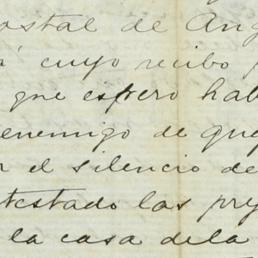 ostal de Ang
á cuyo recibo
que espero hab
enemigo de que
r el silencio de
testado las pre
la casa dela